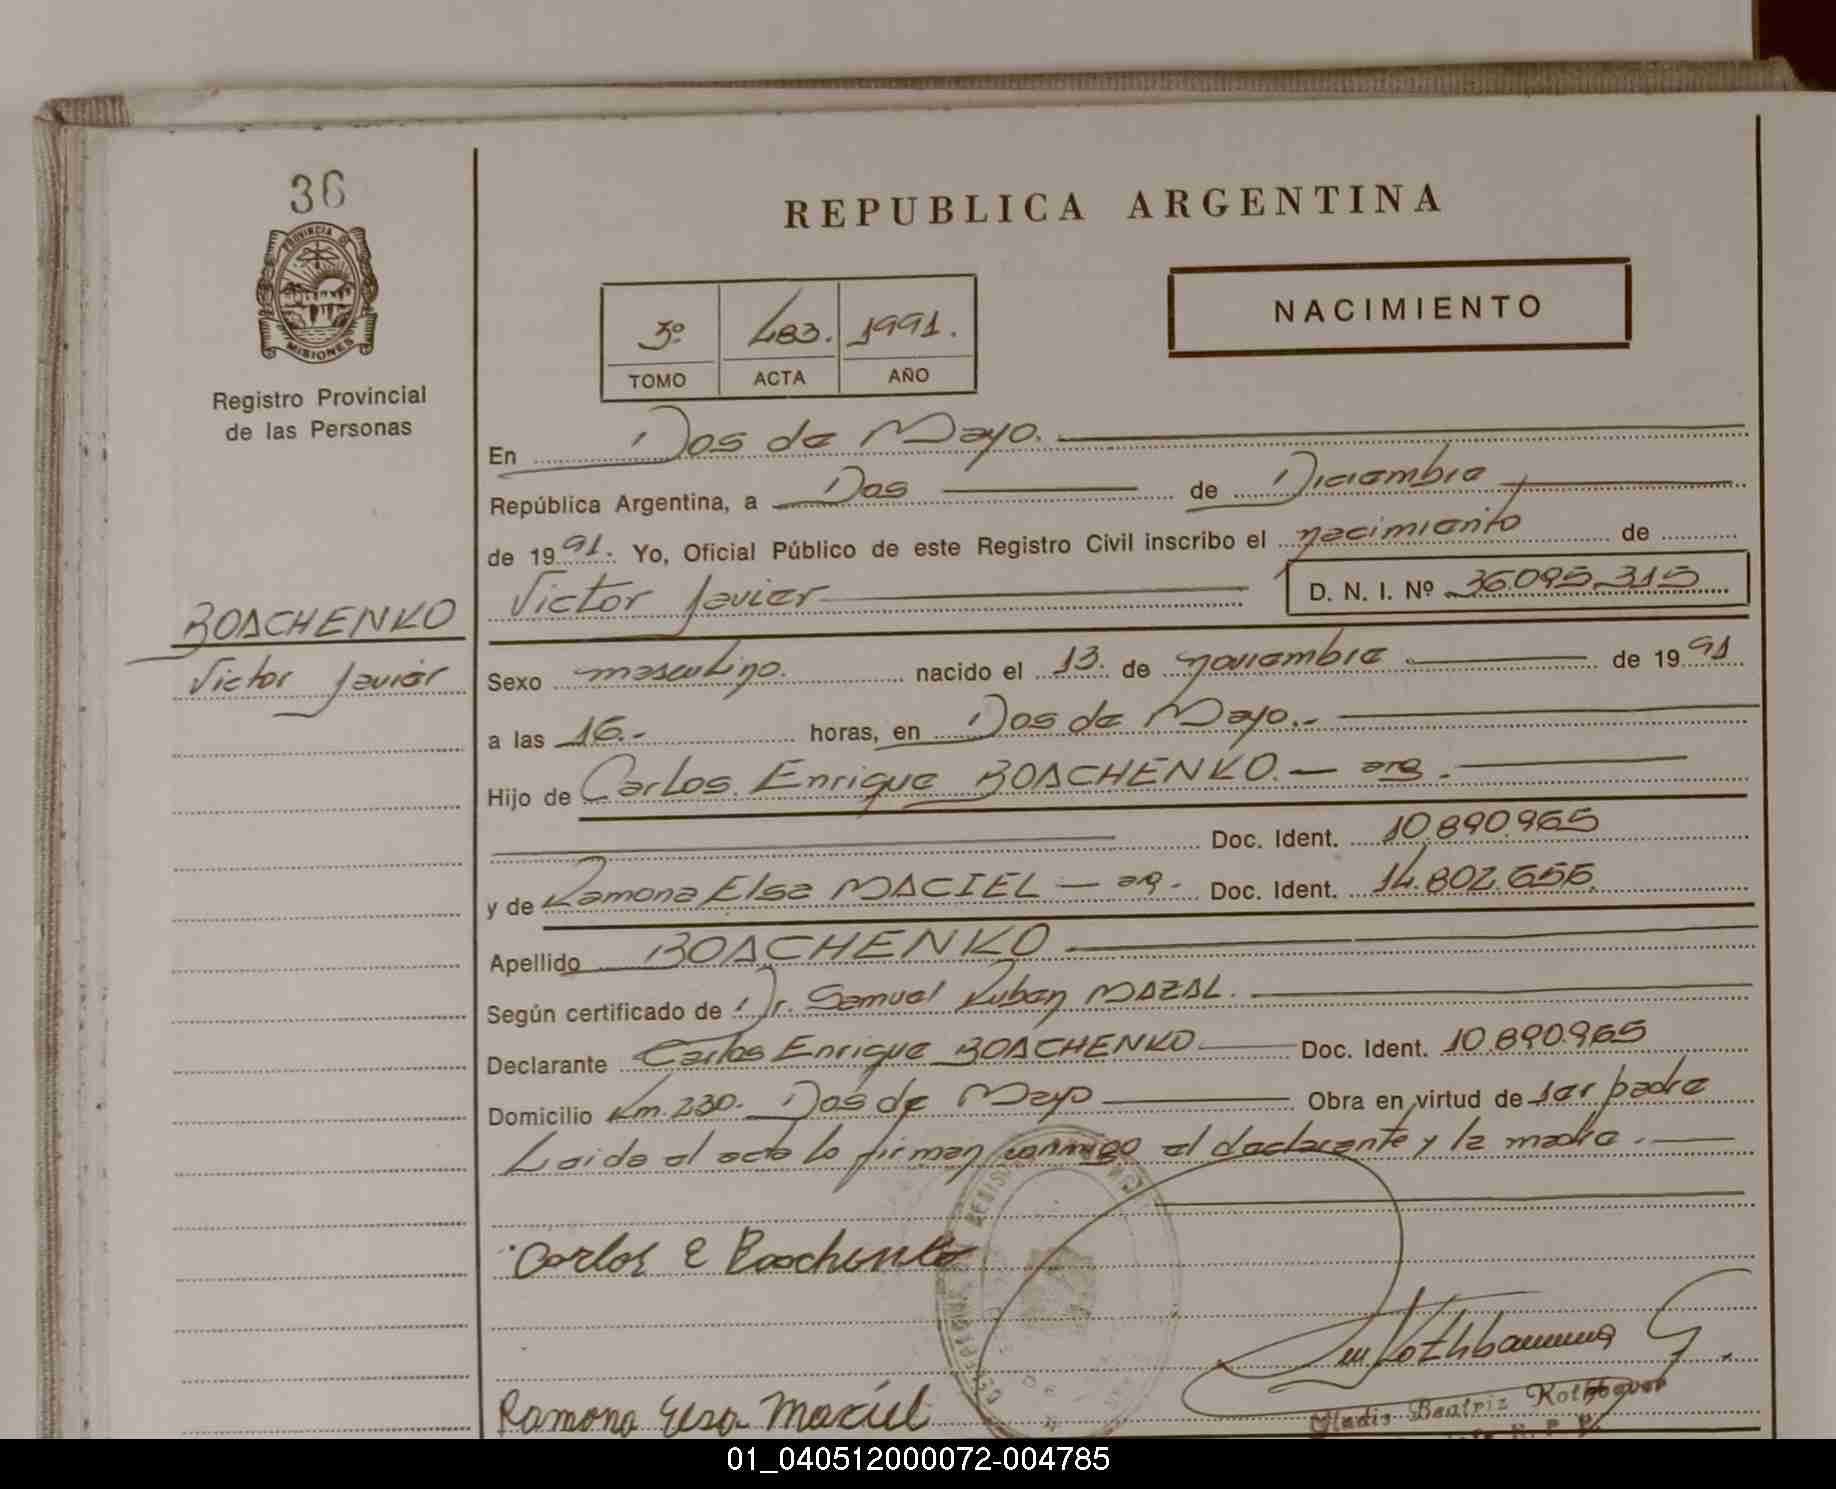 36
PROVINCIA DE
MISIONES
Registro Provincial
de las Personas
REPUBLICA ARGENTINA
NACIMIENTO
3º 483. 1991.
TOMO ACTA AÑO
En Dos de Mayo.
República Argentina, a Dos de Diciembre
de 1991. Yo, Oficial Público de este Registro Civil inscribo el nacimiento de
Victor Javier D. N. I. Nº 36.095.315
BOACHENKO
Victor Javier
Sexo masculino. nacido el 13. de noviembre de 1991
a las 16.- horas, en Dos de Mayo.-
Hijo de Carlos Enrique BOACHENKO.- arg.
Doc. Ident. 10.890.965
y de Ramona Elsa MACIEL - arg. Doc. Ident. 14.802.656
Apellido BOACHENKO
Según certificado de Dr. Samuel Ruben MAZAL.
Declarante Carlos Enrique BOACHENKO Doc. Ident. 10.890.965
Domicilio Km. 230. Dos de Mayo Obra en virtud de ser padre
Leida el acta lo firman conmigo el declarante y la madre.
Carlos E Boachenko
Ramona Elsa Maciel
Gladis Beatriz
01_040512000072-004785